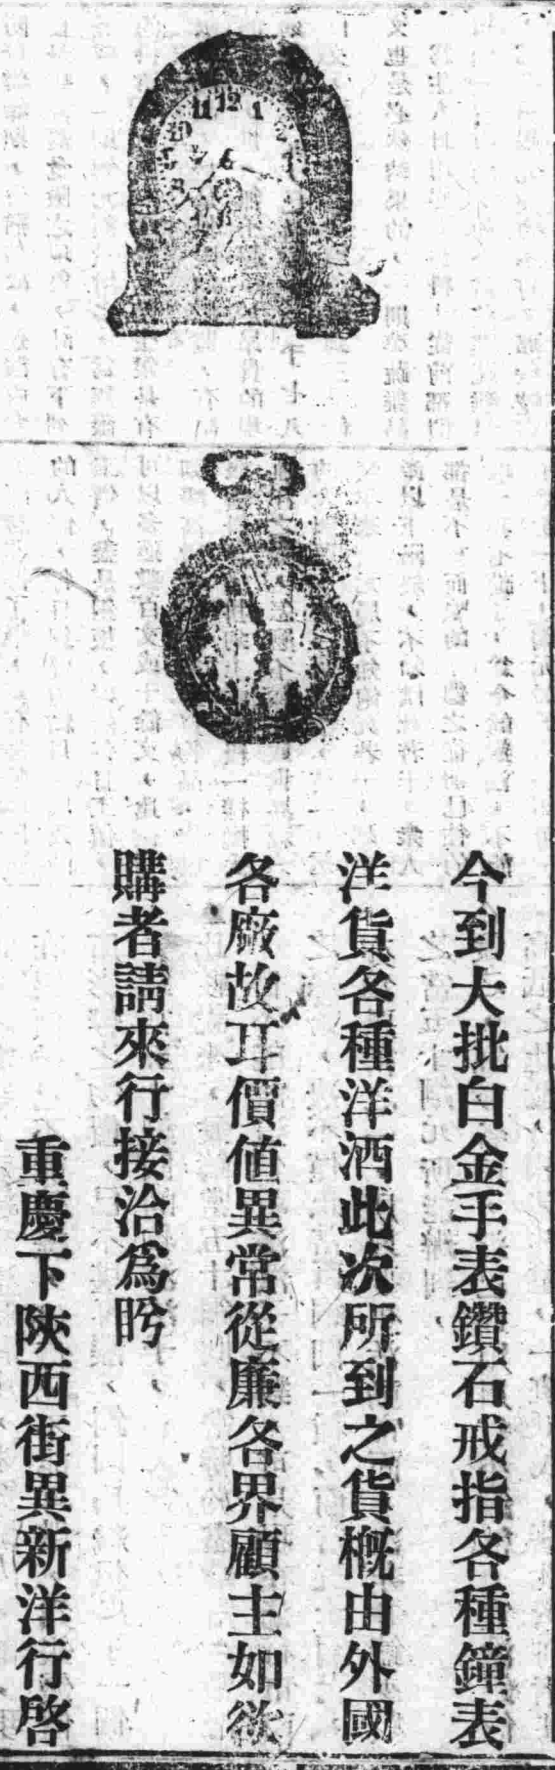 今到大批白金手表鑽石戒指各種鐘表
洋貨各種洋酒此次所到之貨槪由外國
各廠故耳價値異常從廉各界顧主如欲
購者請來行接洽爲盻
重慶下陝西街異新洋行啓